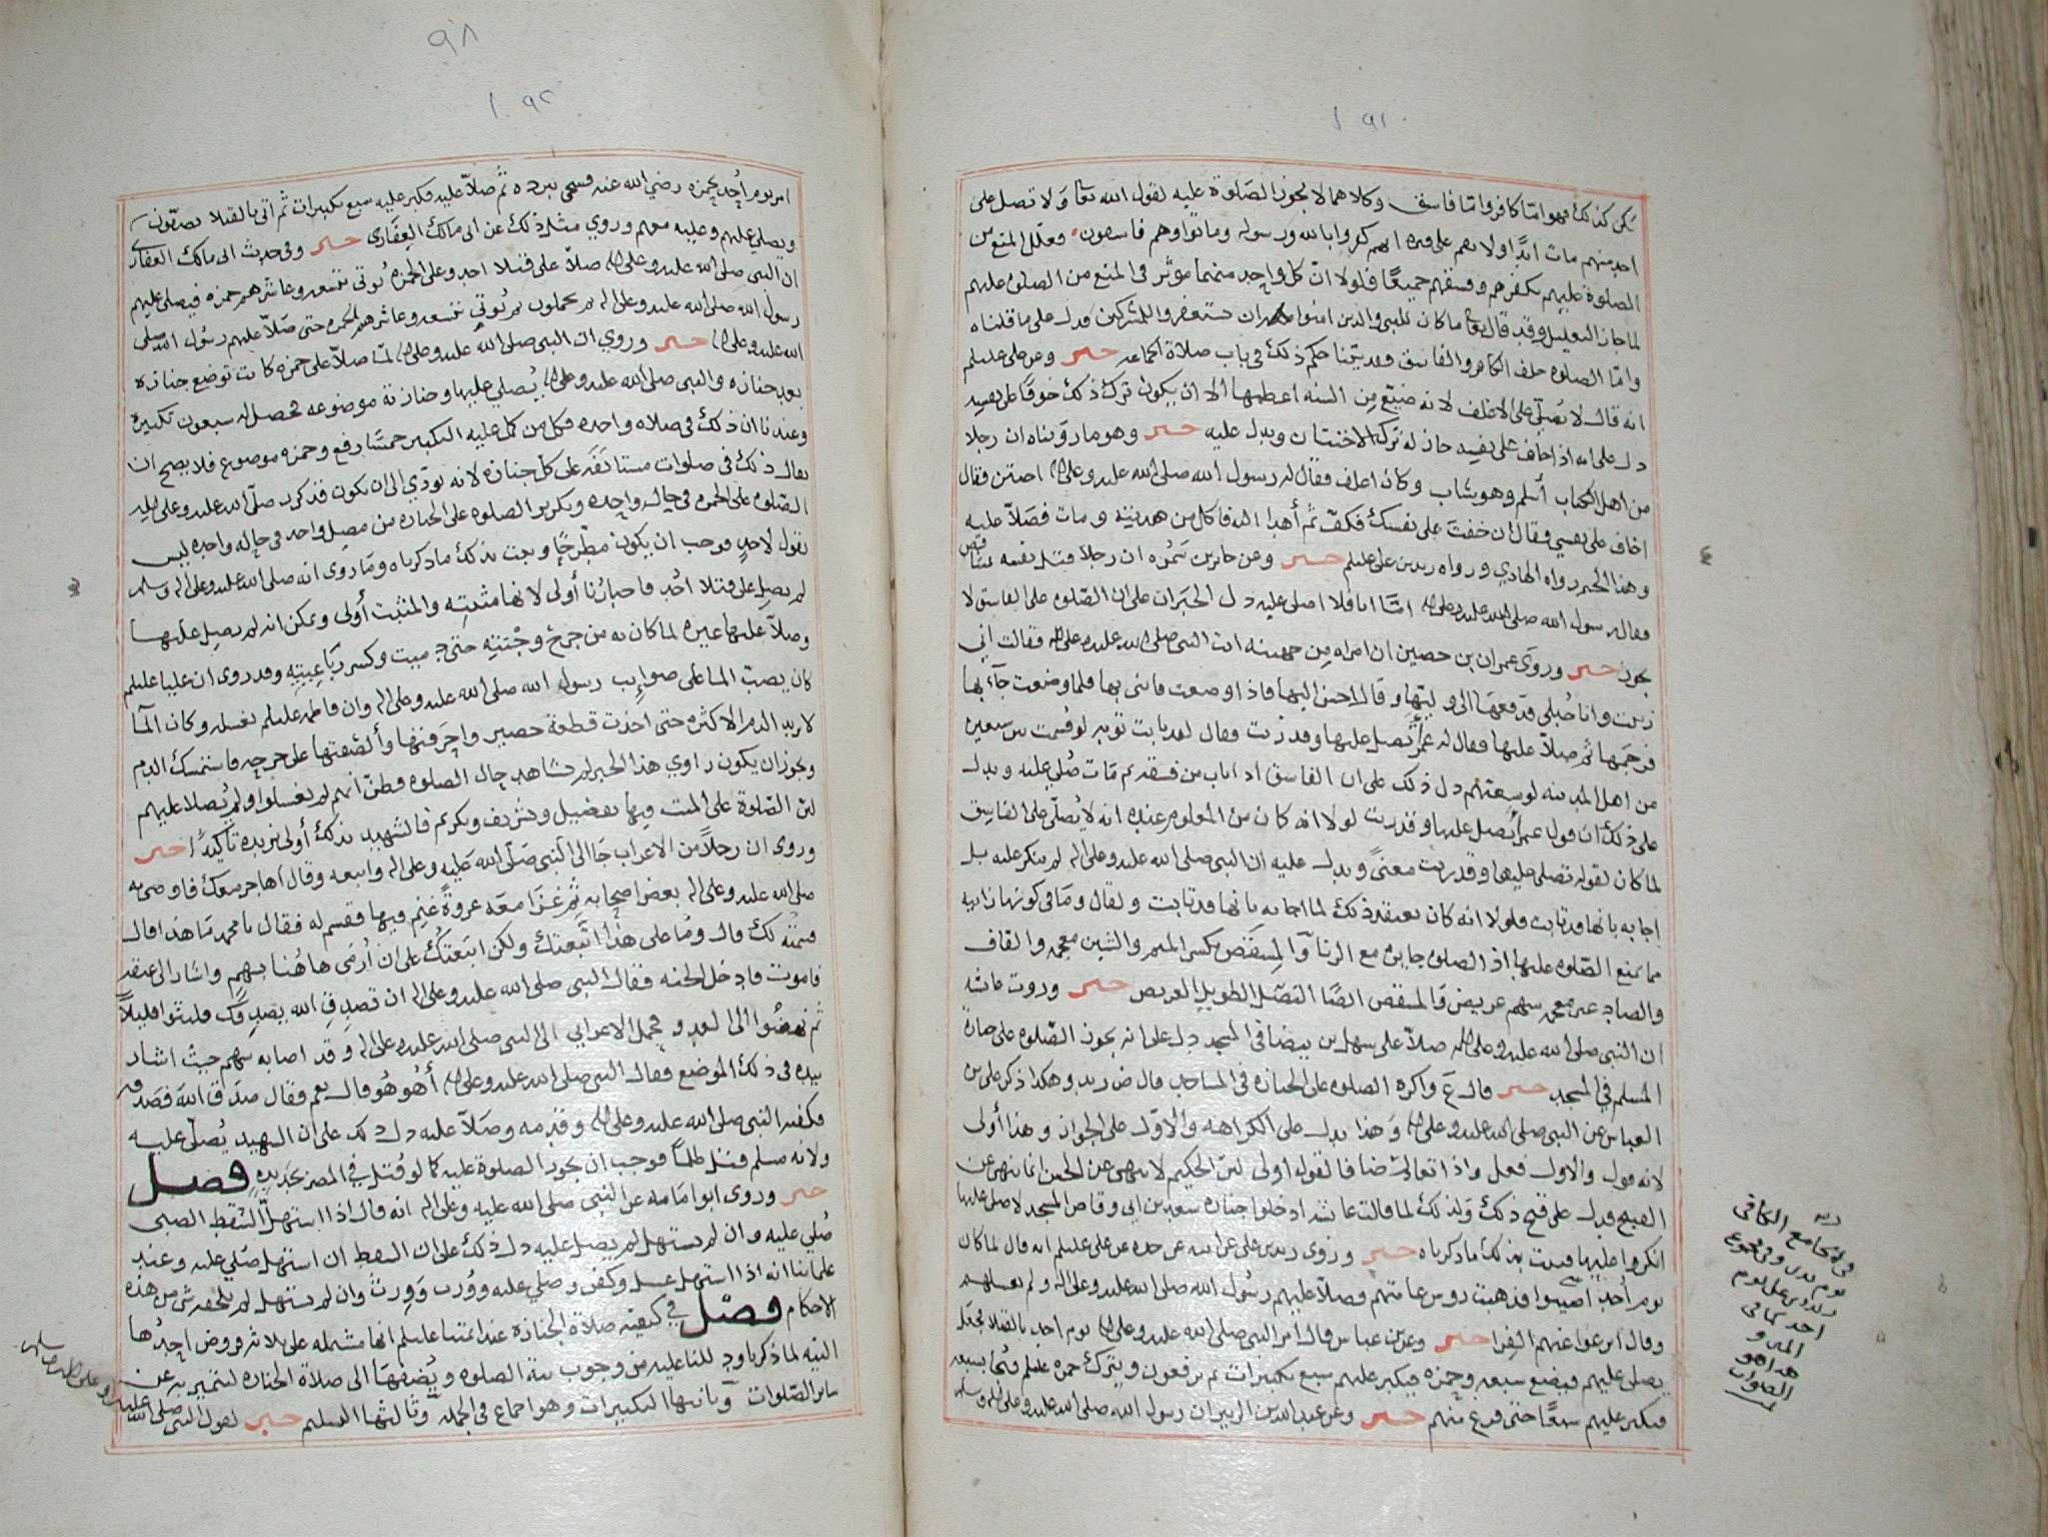 ١٩١
يكن كذلك فهو اما كافر واما فاسق وكلاهما لا تجوز الصلوة عليه لقول الله تعا ولا تصل على
احد منهم مات ابدًا ولا تقم على قبره انهم كفروا بالله ورسوله وماتوا وهم فاسقون فعلل المنع من
الصلوة عليهم بكفرهم وفسقهم جميعًا فلولا ان كل واحد منهما مؤثر في المنع من الصلوة عليهم
لما جاز التعليل وقد قال تعا ما كان للنبي والذين امنوا ان يستغفروا للمشركين فدل على ما قلناه
واما الصلوة خلف الكافر والفاسق فقد بينا حكم ذلك في باب صلاة الجماعه خبر وعن علي عليلم
انه قال لا يصلى على الاغلف لانه ضيع من السنه اعظمها الا ان يكون ترك ذلك خوفًا على نفسه
دل على انه اذا خاف على نفسه جاز له ترك الاختتان ويدل عليه خبر وهو ما رويناه ان رجلا
من اهل الكتاب أسلم وهو شاب وكان اغلف فقال له رسول الله صلى الله عليه وعلى اله اختتن فقال
اخاف على نفسي فقال ان خفت على نفسك فكف ثم أهدا اليه فاكل من هديته ومات فصلا عليه
وهذا الخبر رواه الهادي ورواه زيد بن علي عليلم خبر وعن جابر بن سمره ان رجلا قتل نفسه بمشاقص
فقال رسول الله صلى الله عليه وعلى اله اما انا فلا اصلي عليه دل الخبران على ان الصلوه على الفاسق لا
تجوز خبر وروى عمران بن حصين ان امراه من جهينه اتت النبي صلى الله عليه وعلى اله فقالت اني
زنيت وانا حبلى فدفعها الى وليها وقال احسن اليها فاذا وضعت فاتني بها فلما وضعت جآء بها
فرجمها ثم صلا عليها فقال له عمر أتصلي عليها وقد زنت فقال لقد تابت توبه لو قسمت بين سبعين
من اهل المدينه لوسعتهم دل ذلك على ان الفاسق اذا تاب من فسقه ثم مات صلي عليه ويدل
على ذلك ان قول عمر أتصلي عليها وقد زنت لولا انه كان من المعلوم عنده انه لا يصلى على الفاسق
لما كان لقوله تصلي عليها وقد زنت معنى ويدل عليه ان النبي صلى الله عليه وعلى اله لم ينكر عليه بل
اجابه بانها قد تابت فلولا انه كان يعتقد ذلك لما اجابه بانها قد تابت ولقال وما في كونها زانيه
مما يمنع الصلوه عليها اذ الصلوه جايزه مع الزنا والمشقص بكسر الميم والشين معجمه والقاف
والصاد غير معجمه سهم عريض والمشقص ايضًا النصل الطويل العريض خبر وروت عائشه
ان النبي صلى الله عليه وعلى اله صلا على سهل بن بيضا في المسجد دل على انه يجوز الصلوه على جنازة
المسلم في المسجد خبر قال ع واكره الصلوه على الجنازه في المساجد قال ض زيد وهكذا ذكر علي بن
العباس عن النبي صلى الله عليه وعلى اله وهذا يدل على الكراهه والاول على الجواز وهذا أولى
لانه قول والاول فعل واذا تعارضا فالقول أولى لان الحكيم لا ينهى عن الحسن انما ينهى عن
القبيح فدل على قبح ذلك ولذلك لما قالت عائشه ادخلوا جنازه سعد بن ابي وقاص المسجد لاصلي عليها
انكروا عليها فثبت بذلك ما ذكرناه خبر وروى زيد بن علي عن ابيه عن جده عن علي عليلم انه قال لما كان
يوم أحد اصيبوا فذهبت روس عامتهم فصلا عليهم رسول الله صلى الله عليه وعلى اله ولم يغسلهم
وقال انزعوا عنهم الفرا خبر وعن بن عباس قال امر النبي صلى الله عليه وعلى اله يوم احد بالقتلا فجعل
يصلي عليهم فيضع سبعه وحمزه فيكبر عليهم سبع تكبيرات ثم يرفعون ويترك حمزه عليلم ثم يجا بسبعه
فيكبر عليهم سبعًا حتى فرغ منهم خبر وعن عبد الله بن الزبير ان رسول الله صلى الله عليه وعلى اله وسلم
في الجامع الكافي
يوم بدر وفي مجموع
زيد بن علي يوم
احد كما في
المتن و
هذا هو
الصواب
٩٨
١٩٢
امر يوم أحد بحمزه رضي الله عنه فسجي ببرده ثم صلا عليه فكبر عليه سبع تكبيرات ثم اتي بالقتلا يصفون
ويصلي عليهم وعليه معهم وروي مثل ذلك عن ابي مالك الغفاري خبر وفي حديث ابي مالك الغفاري
ان النبي صلى الله عليه وعلى اله صلا على قتلا احد وعلى الحمزه يُوتى بتسعه وعاشرهم حمزه فيصلي عليهم
رسول الله صلى الله عليه وعلى اله ثم يحملون ثم يُوتى بتسعه وعاشرهم الحمزه حتى صلا عليهم رسول الله صلى
الله عليه وعلى اله خبر وروي ان النبي صلى الله عليه وعلى اله لما صلا على حمزه كانت توضع جنازه
بعد جنازه والنبي صلى الله عليه وعلى اله يُصلي عليها وجنازته موضوعه فحصل له سبعون تكبيرة
وعندنا ان ذلك في صلاه واحده فكل من كمل عليه التكبير خمسًا رفع وحمزه موضوع فلا يصح ان
يقال ذلك في صلوات مستانفه على كل جنازه لانه يودي الى ان يكون قد كرر صلى الله عليه وعلى اله
الصلوه على الحمزه في حال واحده وتكرير الصلوه على الجنازه من مصل واحد في حاله واحده ليس
بقول لاحد فوجب ان يكون مطرحًا ويثبت بذلك ما ذكرناه وما روي انه صلى الله عليه وعلى اله وسلم
لم يصل على قتلا احُد فاخبارُنا أولى لانها مثبته والمثبت أولى ويمكن انه لم يصل عليها
وصلا عليها غيره لما كان به من جرح وجنته حتى كسر رباعيته وقد روى ان عليا عليلم
كان يصب الما على رسول الله صلى الله عليه وعلى اله وان فاطمه عليلم تغسله وكان الما
لا يزيد الدم الا كثره حتى اخذت قطعة حصير واحرقتها وألصقتها على جرحه فاستمسك الدم
ويجوز ان يكون راوي هذا الخبر لم يشاهد حال الصلوه فظن انهم لم يغسلوا ولم يُصلا عليهم
لان الصلوة على الميت فيها تفضيل وتشريف وتكريم فالشهيد بذلك أولى نزيده تأكيدًا خبر
وروى ان رجلا من الاعراب جا الى النبي صلى الله عليه وعلى اله واتبعه وقال اهاجر معك فاوصى به
صلى الله عليه وعلى اله بعض اصحابه ثم غزا معه غزوة غنم فيها فقسم له فقال يا محمد ما هذا قال
قسمته لك قال وما على هذا اتبعتك ولكن اتبعتك على ان أرمى هاهنا بسهم واشار الى عنقه
فاموت فادخل الجنه فقال النبي صلى الله عليه وعلى اله ان تصدق الله يصدقك فلبثوا قليلاً
ثم نهضوا الى العدو فحمل الاعرابي الى النبي صلى الله عليه وعلى اله وقد اصابه سهم حيث اشار
بيده في ذلك الموضع فقال النبي صلى الله عليه وعلى اله أهو هو قال نعم فقال صدق الله فصدقه
فكفنه النبي صلى الله عليه وعلى اله وقدمه وصلا عليه دل ذلك على ان الشهيد يُصلى عليه
ولانه مسلم قتل ظلمًا فوجب ان تجوز الصلوة عليه كما لو قُتل في المصر بحديده فصل
خبر وروى ابو امامه عن النبي صلى الله عليه وعلى اله انه قال اذا استهل السقط الصبي
صُلي عليه وان لم يستهل لم يصل عليه دل ذلك على ان السقط ان استهل صُلي عليه وعند
علمائنا انه اذا استهل غسل وكفن وصلي عليه ووُرث وورث وان لم يستهل لم يلحقه شي من هذه
الاحكام فصل في كيفيه صلاة الجنازة عند ائمتنا عليلم انها مشتمله على ثلاثه فروض احدُها
النيه لما ذكرنا ودللنا عليه من وجوب نية الصلوه ويُضيفها الى صلاة الجنازه لتتميز به عن
سائر الصلوات وثانيها التكبيرات وهو اجماع في الجمله وثالثها التسليم خبر لقول النبي صلى الله عليه
وعلى اله وسلم